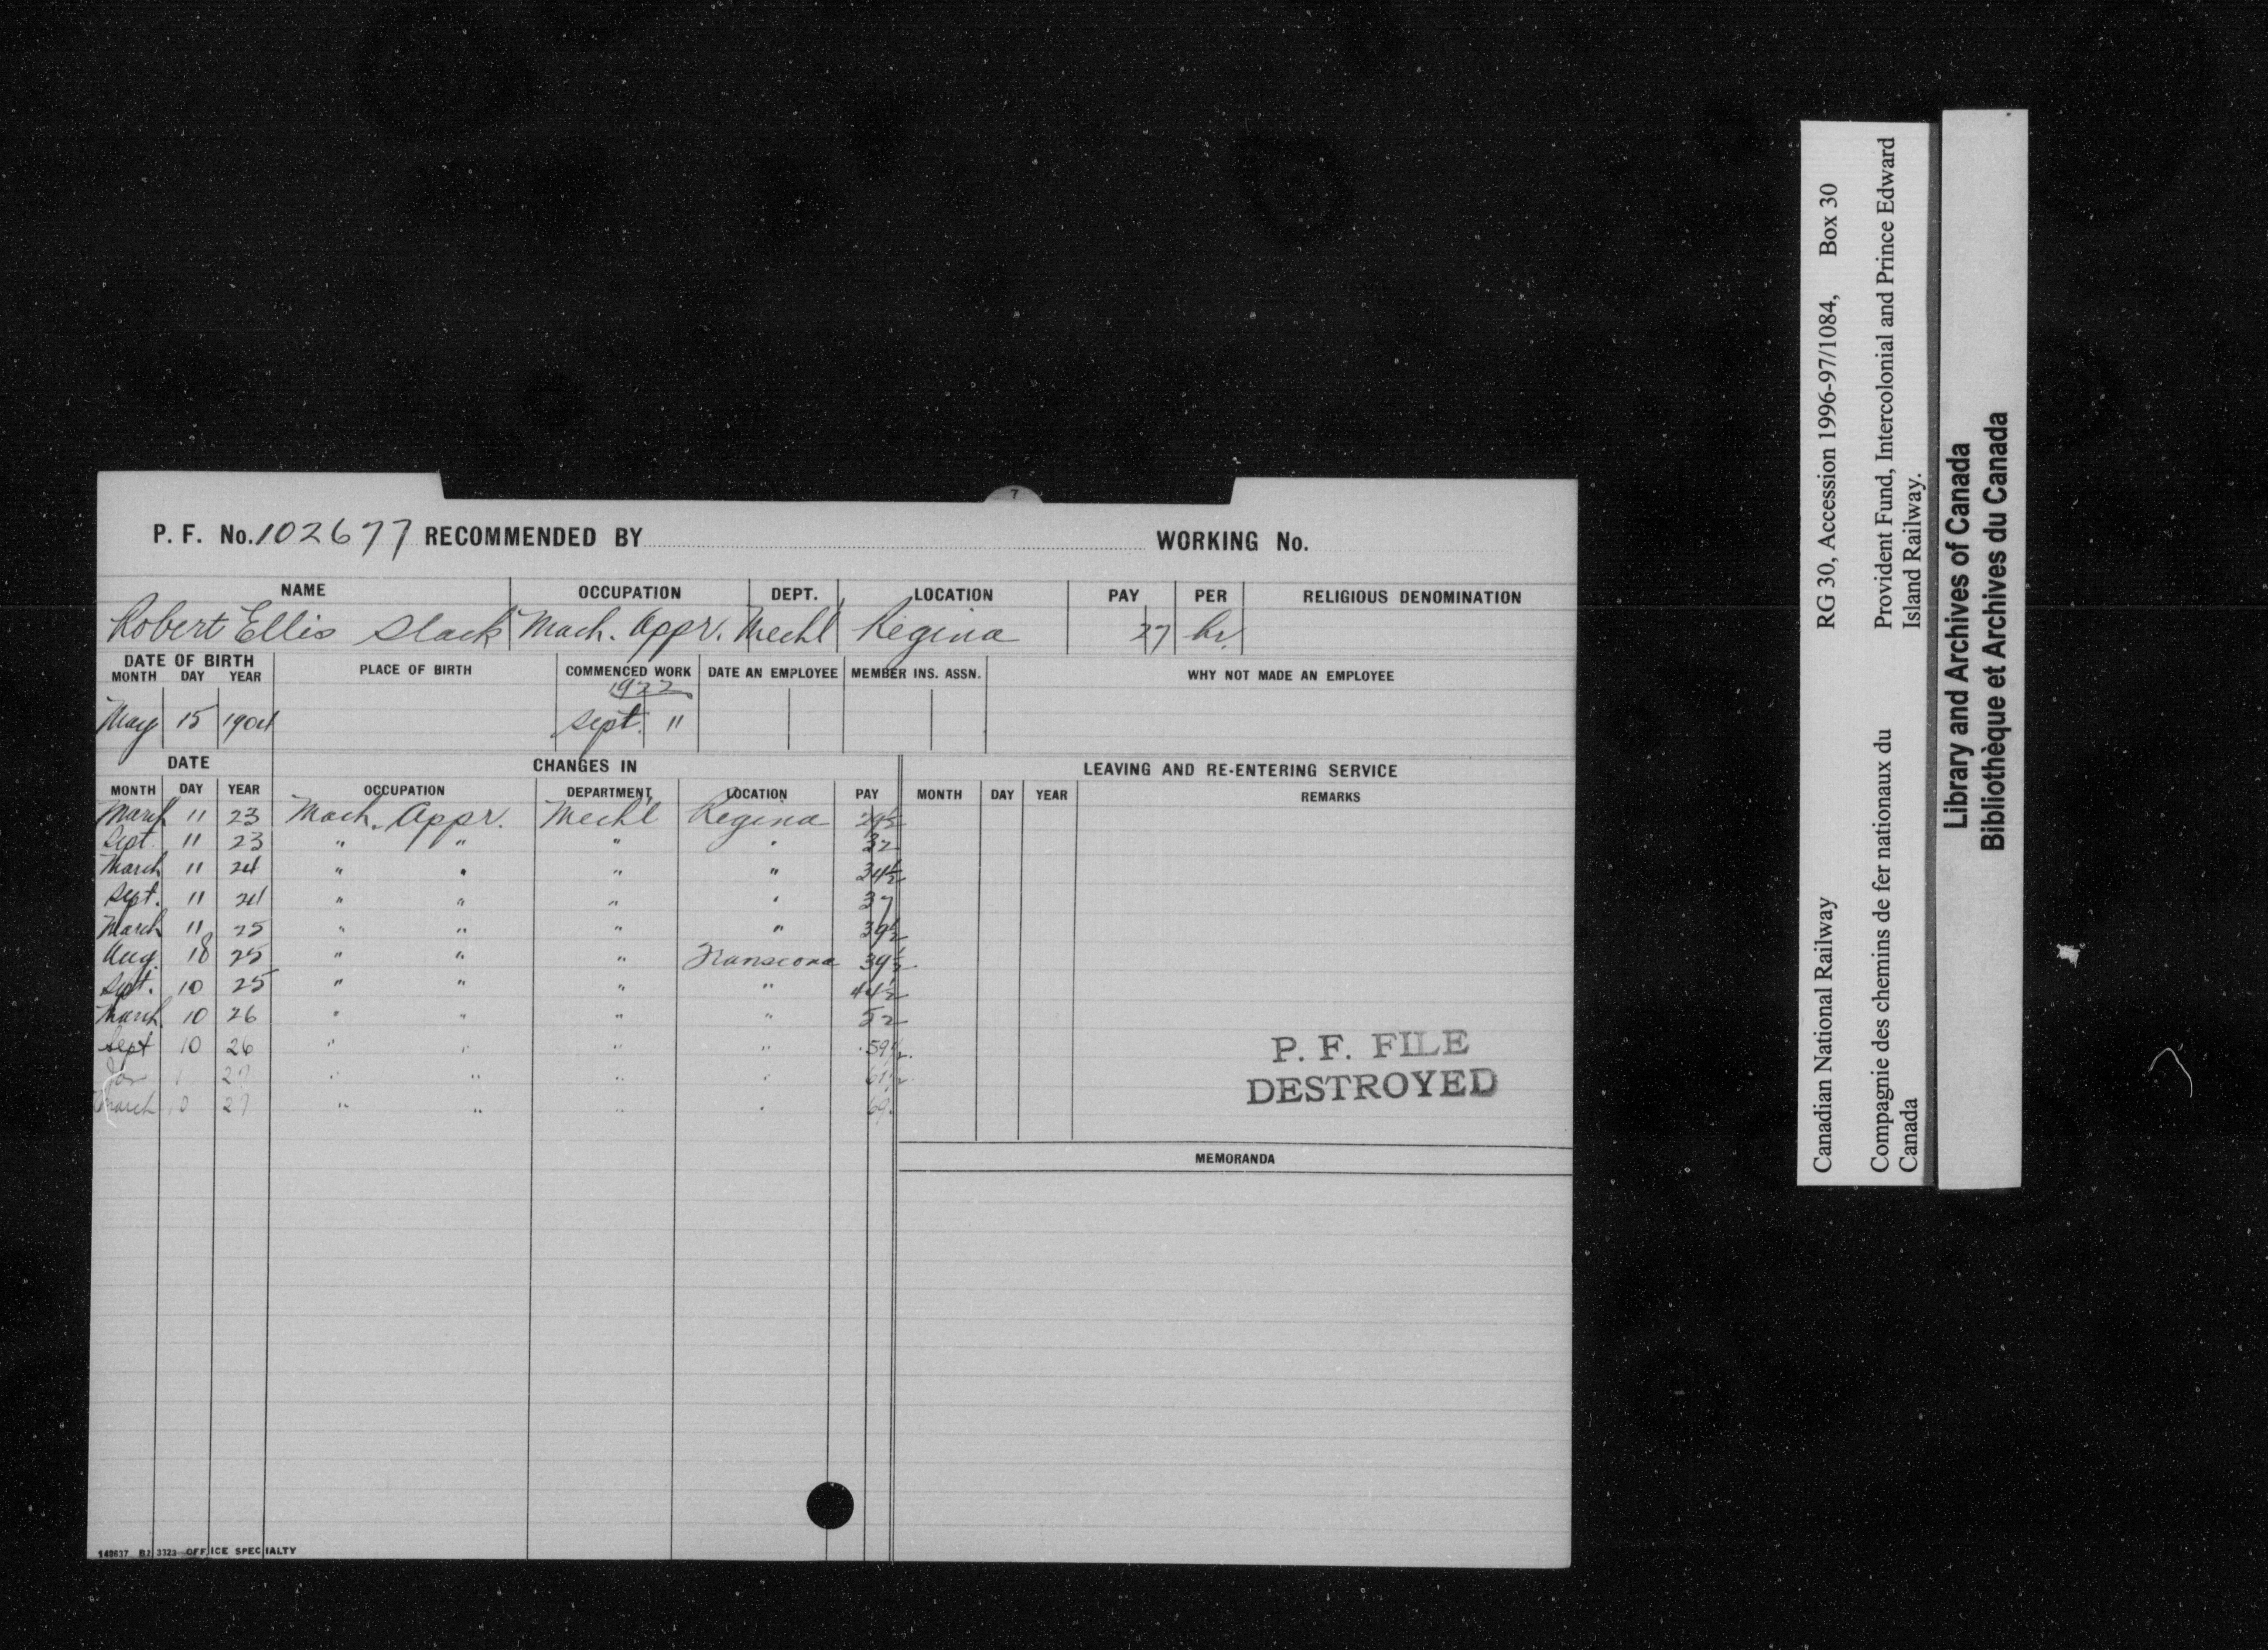 7
P. F. No. 102677 RECOMMENDED BY WORKING No.
NAME OCCUPATION DEPT. LOCATION PAY PER RELIGIOUS DENOMINATION
Robert Ellis Slack Mach. Appr. Mechl Regina 27 hr.
DATE OF BIRTH PLACE OF BIRTH COMMENCED WORK DATE AN EMPLOYEE MEMBER INS. ASSN. WHY NOT MADE AN EMPLOYEE
MONTH DAY YEAR
1922
May 15 1904 Sept. 11
DATE CHANGES IN LEAVING AND RE-ENTERING SERVICE
MONTH DAY YEAR OCCUPATION DEPARTMENT LOCATION PAY MONTH DAY YEAR REMARKS
March 11 23 Mach. Appr. Mechl Regina 29½
Sept. 11 23 " " " " 32
March 11 24 " " " " 34½
Sept. 11 24 " " " " 37
March 11 25 " " " " 39½
Aug. 18 25 " " " Transcona 39½
Sept. 10 25 " " " " 44½
March 10 26 " " " " 52
Sept 10 26 " " " " 59½
Jan 1 27 " " " " 61½
March 10 27 " " " " 69
P. F. FILE
DESTROYED
MEMORANDA
149637 B2 3323 OFFICE SPECIALTY
Canadian National Railway RG 30, Accession 1996-97/1084, Box 30
Compagnie des chemins de fer nationaux du Canada
Provident Fund, Intercolonial and Prince Edward Island Railway.
Library and Archives of Canada
Bibliothèque et Archives du Canada